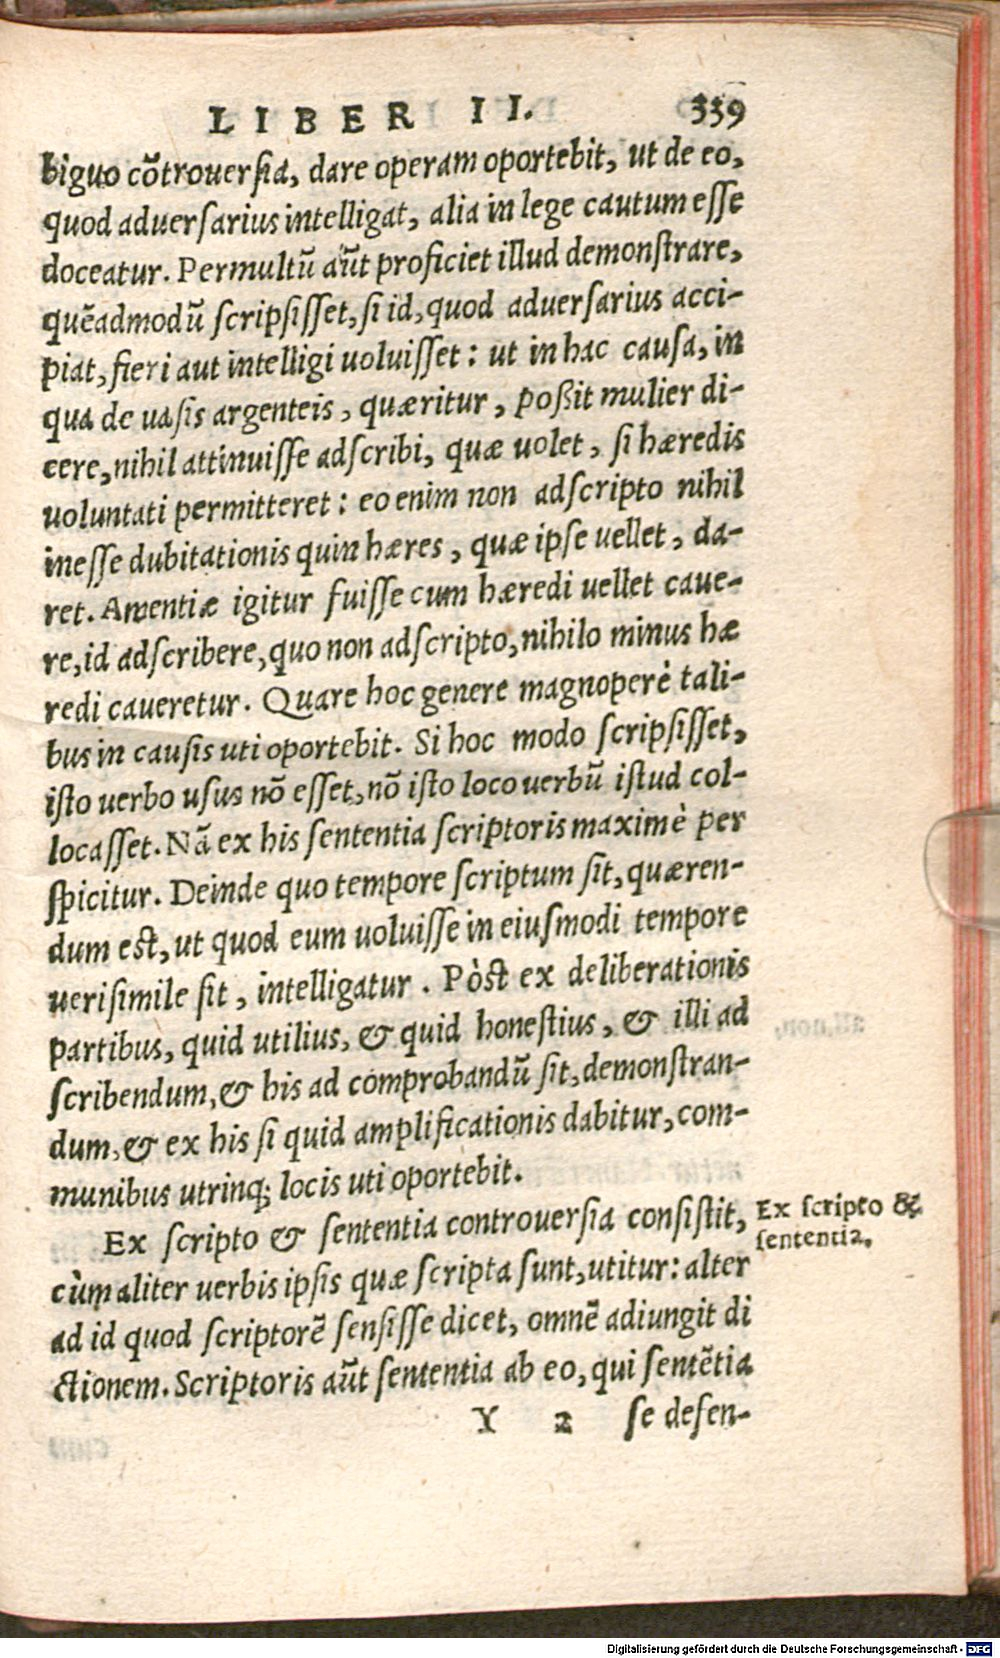 LIBER II. 339
biguo cõtrouersia, dare operam oportebit, ut de eo,
quod aduersarius intelligat, alia in lege cautum esse
doceatur. Permultũ aũt proficiet illud demonstrare,
quẽadmodũ scripsisset, si id, quod aduersarius acci-
piat, fieri aut intelligi uoluisset: ut in hac causa, in
qua de uasis argenteis, quæritur, poßit mulier di-
cere, nihil attinuisse adscribi, quæ uolet, si hæredis
uoluntati permitteret: eo enim non adscripto nihil
inesse dubitationis quin hæres, quæ ipse uellet, da-
ret. Amentiæ igitur fuisse cum hæredi uellet caue-
re, id adscribere, quo non adscripto, nihilo minus hæ
redi caueretur. Quare hoc genere magnoperè tali-
bus in causis uti oportebit. Si hoc modo scripsisset,
isto uerbo usus nõ esset, nõ isto loco uerbũ istud col-
locasset. Nã ex his sententia scriptoris maximè per
spicitur. Deinde quo tempore scriptum sit, quæren-
dum est, ut quod eum uoluisse in eiusmodi tempore
uerisimile sit, intelligatur. Pòst ex deliberationis
partibus, quid utilius, & quid honestius, & illi ad
scribendum, & his ad comprobandũ sit, demonstran-
dum, & ex his si quid amplificationis dabitur, com-
munibus utrinq; locis uti oportebit.
Ex scripto & sententia controuersia consistit,
cùm aliter uerbis ipsis quæ scripta sunt, utitur: alter
ad id quod scriptorẽ sensisse dicet, omnẽ adiungit di
ctionem. Scriptoris aũt sententia ab eo, qui sentẽtia
Y 2 se defen-
Ex scripto &
sententia.
Digitalisierung gefördert durch die Deutsche Forschungsgemeinschaft - DFG